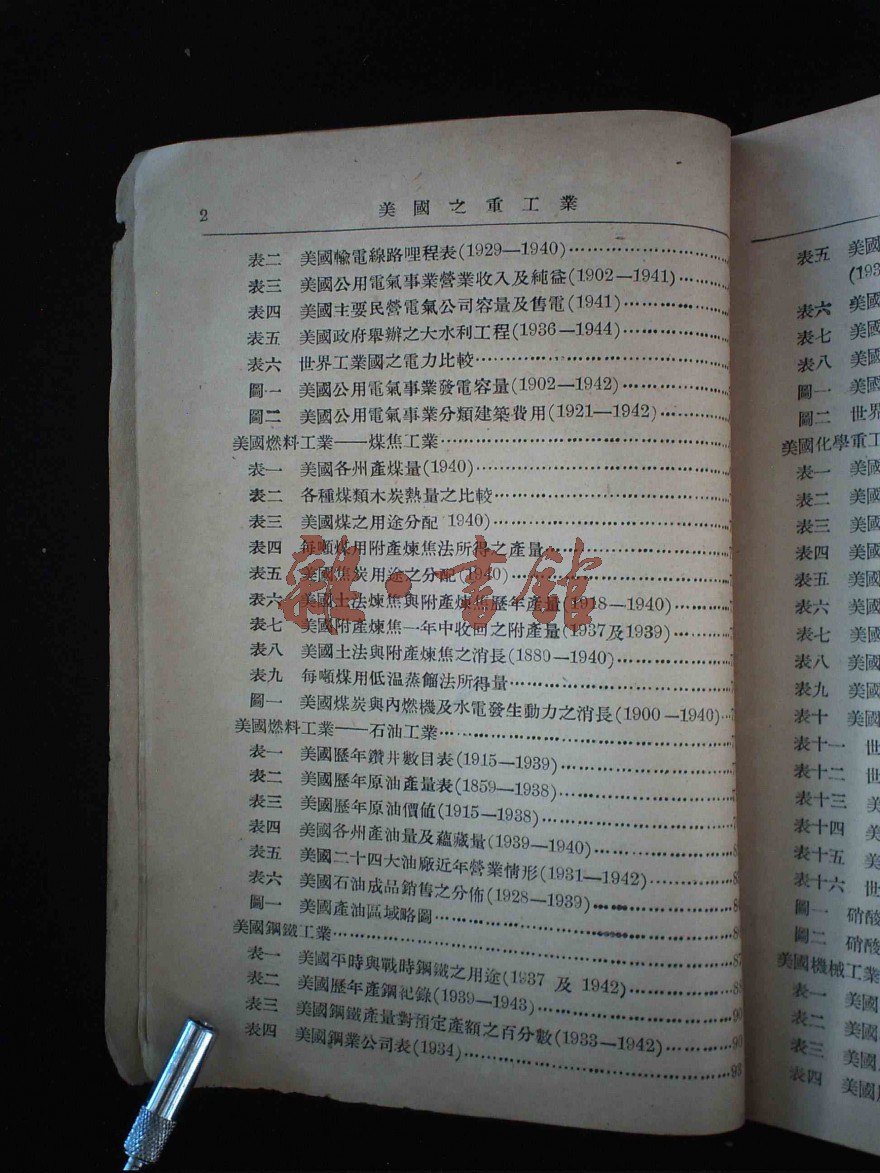 2 美國之重工業
表二 美國輸電線路哩程表(1929—1940)
表三 美國公用電氣事業營業收入及純益(1902—1941)
表四 美國主要民營電氣公司容量及售電(1941)
表五 美國政府舉辦之大水利工程(1936—1944)
表六 世界工業國之電力比較
圖一 美國公用電氣事業發電容量(1902—1942)
圖二 美國公用電氣事業分類建築費用(1921—1942)
美國燃料工業——煤焦工業
表一 美國各州產煤量(1940)
表二 各種煤類木炭熱量之比較
表三 美國煤之用途分配 1940)
表四 每噸煤用附產煉焦法所得之產量
表五 美國焦炭用途之分配(1940)
表六 美國土法煉焦與附產煉焦歷年產量(1918—1940)
表七 美國附產煉焦一年中收回之附產量(1937及1939)
表八 美國土法與附產煉焦之消長(1880—1940)
表九 每噸煤用低溫蒸餾法所得量
圖一 美國煤炭與內燃機及水電發生動力之消長(1900—1940)
美國燃料工業——石油工業
表一 美國歷年鑽井數目表(1915—1939)
表二 美國歷年原油產量表(1859—1938)
表三 美國歷年原油價值(1915—1938)
表四 美國各州產油量及蘊藏量(1939—1940)
表五 美國二十四大油廠近年營業情形(1931—1942)
表六 美國石油成品銷售之分佈(1928—1939)
圖一 美國產油區域略圖
美國鋼鐵工業 87
表一 美國平時與戰時鋼鐵之用途(1937 及 1942)
表二 美國歷年產鋼紀錄(1939—1943) 90
表三 美國鋼鐵產量對預定產額之百分數(1933—1942) 90
表四 美國鋼業公司表(1934) 93
雜·書館
表五 美國
(193
表六 美國
表七 美國
表八 美國
圖一 美國
圖二 世界
美國化學重工
表一 美國
表二 美國
表三 美國
表四 美國
表五 美國
表六 美國
表七 美國
表八 美國
表九 美國
表十 美國
表十一 世
表十二 世
表十三 美
表十四 美
表十五 美
表十六 世
圖一 硝酸
圖二 硝酸
美國機械工業
表一 美國
表二 美國
表三 美國
表四 美國